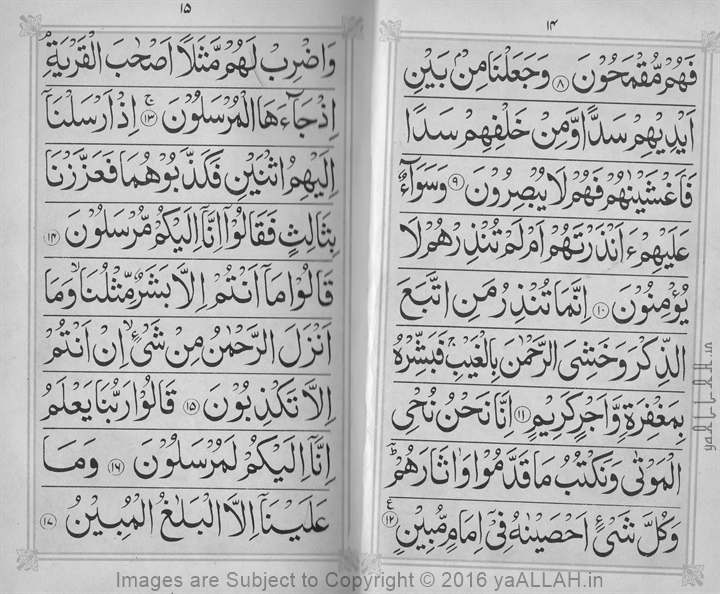 ۱۴
فَهُمْ مُّقْمَحُوْنَ ۸ وَجَعَلْنَا مِنْۢ بَيْنِ
اَيْدِيْهِمْ سَدًّا وَّمِنْ خَلْفِهِمْ سَدًّا
فَاَغْشَيْنٰهُمْ فَهُمْ لَا يُبْصِرُوْنَ ۹ وَسَوَآءٌ
عَلَيْهِمْ ءَاَنْذَرْتَهُمْ اَمْ لَمْ تُنْذِرْهُمْ لَا
يُؤْمِنُوْنَ ۱۰ اِنَّمَا تُنْذِرُ مَنِ اتَّبَعَ
الذِّكْرَ وَخَشِىَ الرَّحْمٰنَ بِالْغَيْبِ ۚ فَبَشِّرْهُ
بِمَغْفِرَةٍ وَّاَجْرٍ كَرِيْمٍ ۱۱ اِنَّا نَحْنُ نُحْىِ
الْمَوْتٰى وَنَكْتُبُ مَا قَدَّمُوْا وَاٰثَارَهُمْ ؕ
وَكُلَّ شَىْءٍ اَحْصَيْنٰهُ فِىْ اِمَامٍ مُّبِيْنٍ ۱۲ ع
۱۵
وَاضْرِبْ لَهُمْ مَّثَلًا اَصْحٰبَ الْقَرْيَةِ ۘ
اِذْ جَآءَهَا الْمُرْسَلُوْنَ ۚ ۱۳ اِذْ اَرْسَلْنَآ
اِلَيْهِمُ اثْنَيْنِ فَكَذَّبُوْهُمَا فَعَزَّزْنَا
بِثَالِثٍ فَقَالُوْٓا اِنَّآ اِلَيْكُمْ مُّرْسَلُوْنَ ۱۴
قَالُوْا مَآ اَنْتُمْ اِلَّا بَشَرٌ مِّثْلُنَا ۙ وَمَآ
اَنْزَلَ الرَّحْمٰنُ مِنْ شَىْءٍ ۙ اِنْ اَنْتُمْ
اِلَّا تَكْذِبُوْنَ ۱۵ قَالُوْا رَبُّنَا يَعْلَمُ
اِنَّآ اِلَيْكُمْ لَمُرْسَلُوْنَ ۱۶ وَمَا
عَلَيْنَآ اِلَّا الْبَلٰغُ الْمُبِيْنُ ۱۷
yaALLAH.in
Images are Subject to Copyright © 2016 yaALLAH.in